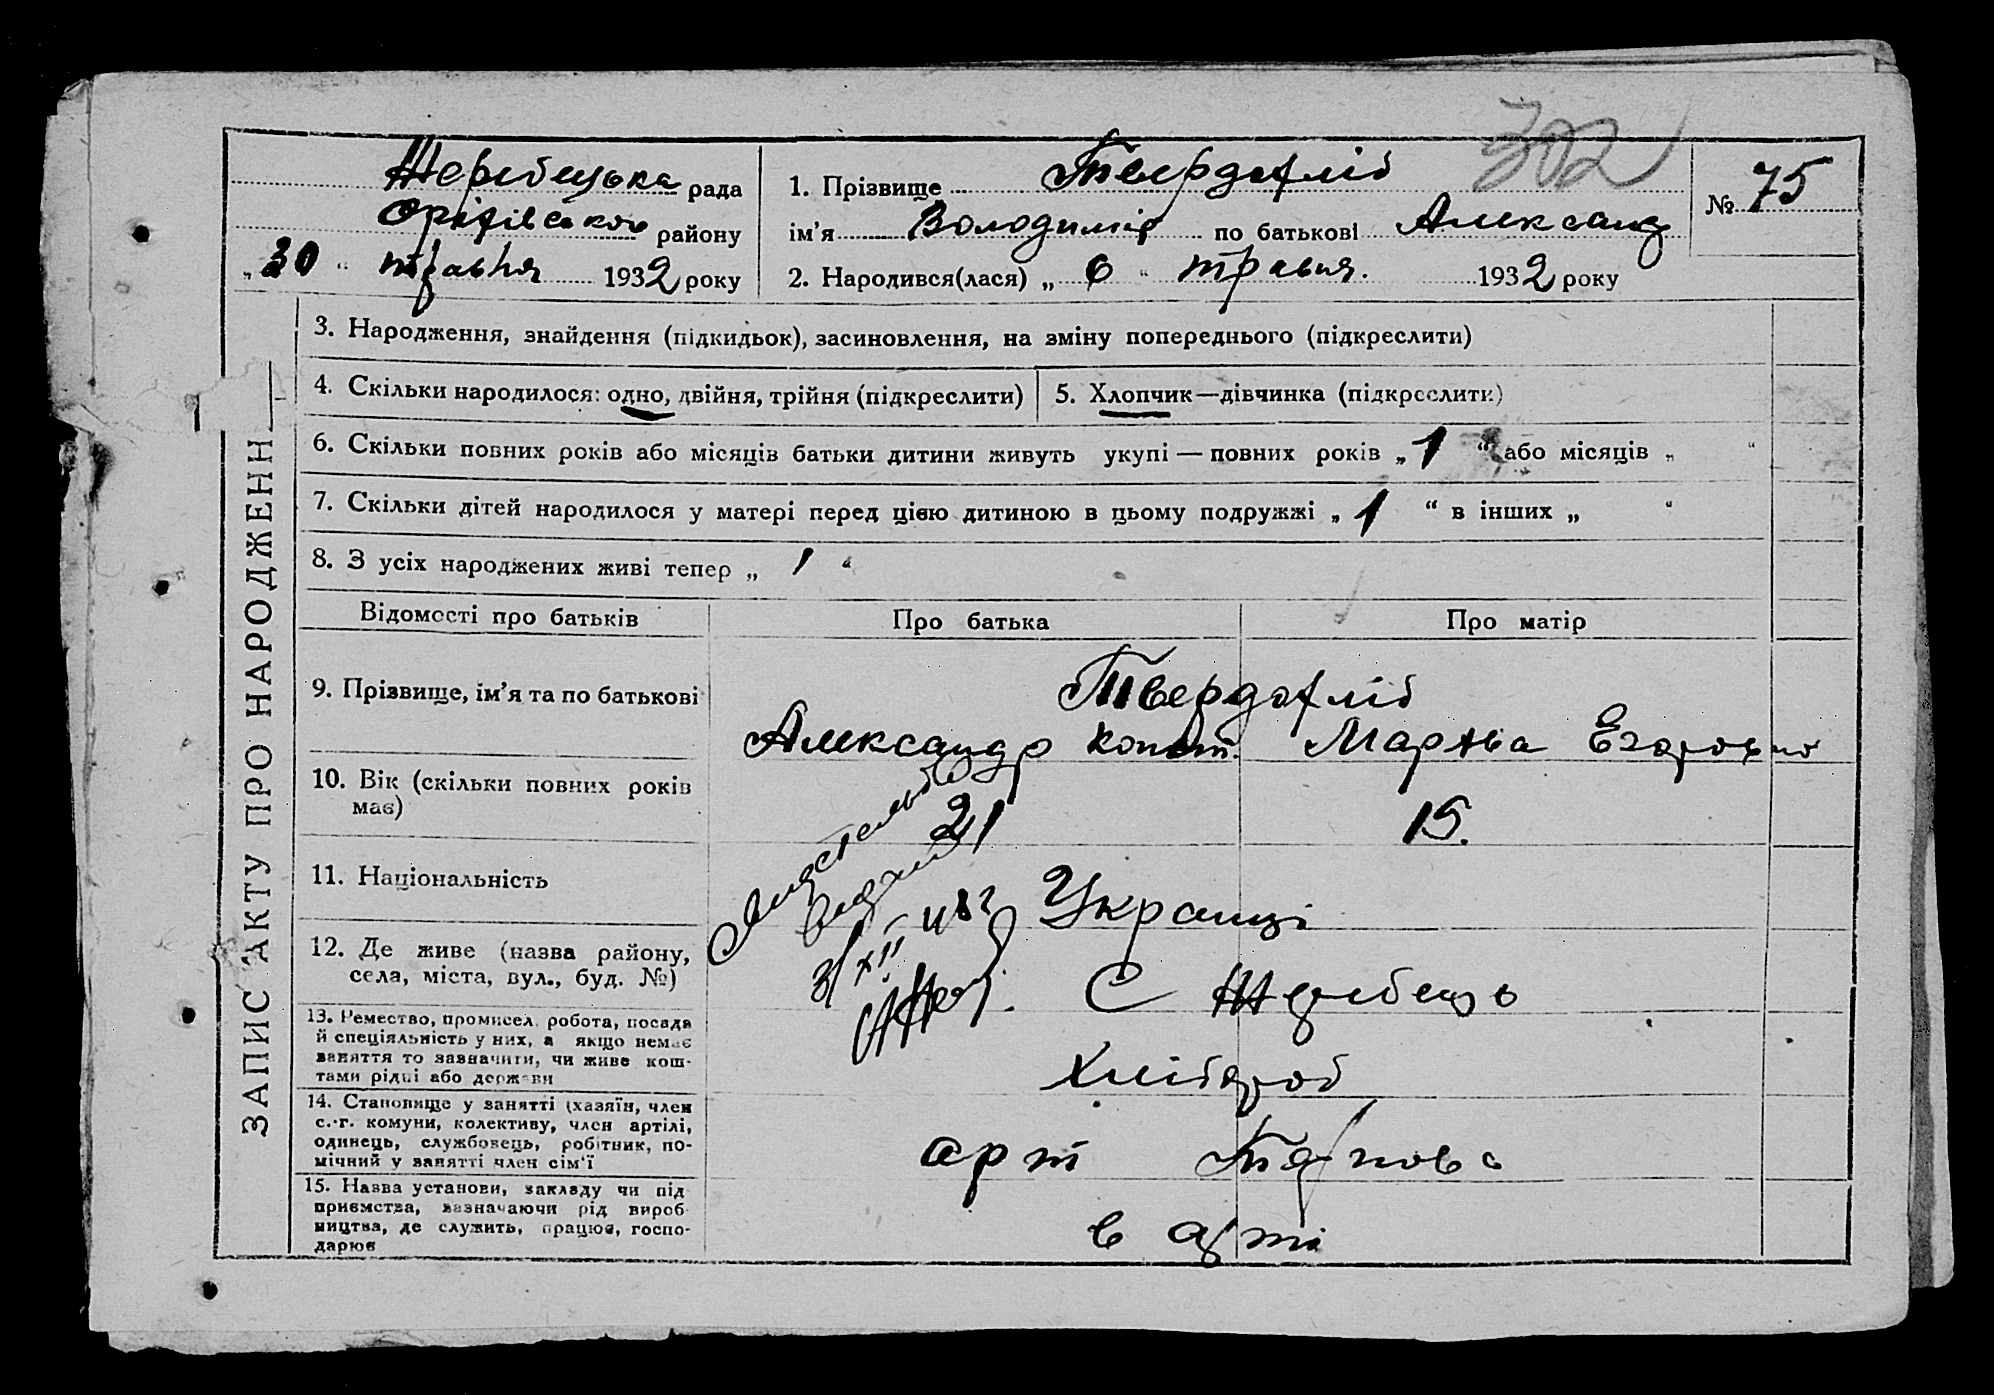 302
Жеребецька рада
Оріхівського району
„30“ травня 1932 року
1. Прізвище Твердохліб
ім’я Володимір по батькові Александ
2. Народився(лася) „6“ травня. 1932 року
№ 75
ЗАПИС АКТУ ПРО НАРОДЖЕНН
3. Народження, знайдення (підкидьок), засиновлення, на зміну попереднього (підкреслити)
4. Скільки народилося: одно, двійня, трійня (підкреслити)
5. Хлопчик—дівчинка (підкреслити)
6. Скільки повних років або місяців батьки дитини живуть укупі — повних років „1“ або місяців „ “
7. Скільки дітей народилося у матері перед цією дитиною в цьому подружжі „1“ в інших „ “
8. З усіх народжених живі тепер „1“
Відомості про батьків
Про батька
Про матір
9. Прізвище, ім’я та по батькові
Твердохліб
Александр Конст. Марфа Егоровна
10. Вік (скільки повних років
має)
21
15.
11. Національність
Українці
12. Де живе (назва району,
села, міста, вул., буд. №)
С Жеребець
13. Ремество, промисел, робота, посада
й спеціяльність у них, а якщо немає
заняття то зазначити, чи живе кош-
тами рідні або держави
Хлібороб
14. Становище у занятті (хазяїн, член
с.-г. комуни, колективу, член артілі,
одинець, службовець, робітник, по-
мічний у занятті член сім’ї
арт
15. Назва установи, закладу чи під
приємства, зазначаючи рід вироб-
ництва, де служить, працює, госпо-
дарює
в арті